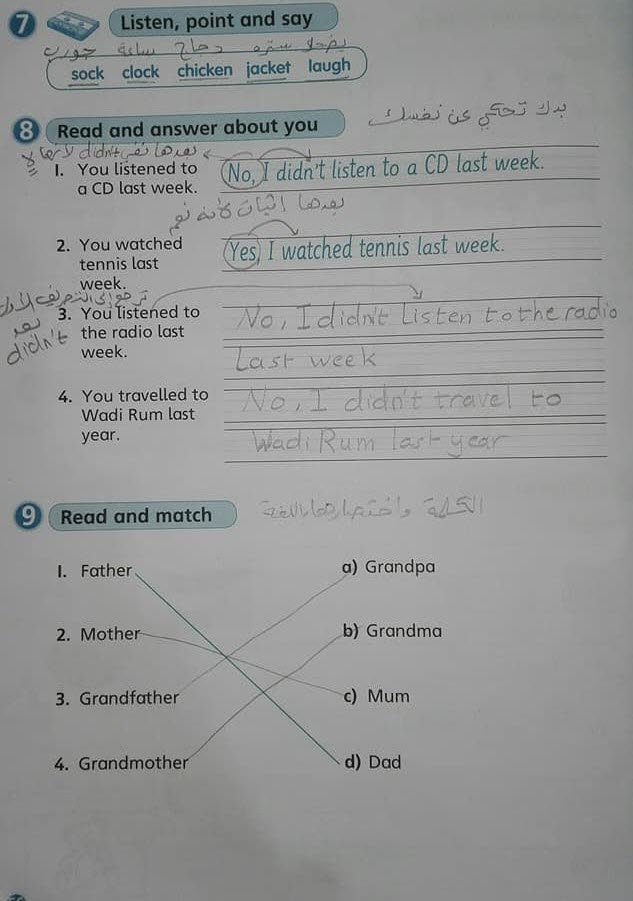 7 Listen, point and say
يضحك ستره دجاج ساعة جورب
sock clock chicken jacket laugh
8 Read and answer about you
بدك تحكي عن نفسك
1. You listened to a CD last week.
No, I didn't listen to a CD last week.
بعدها اثبات لأنه نعم
2. You watched tennis last week.
Yes, I watched tennis last week.
ترجع إلى التصريف الأول
بعد
didn't
3. You listened to the radio last week.
No, I didn't listen to the radio
Last week
4. You travelled to Wadi Rum last year.
No, I didn't travel to
Wadi Rum last year
9 Read and match
الكلمة واختصارها باللغة
1. Father
a) Grandpa
2. Mother
b) Grandma
3. Grandfather
c) Mum
4. Grandmother
d) Dad